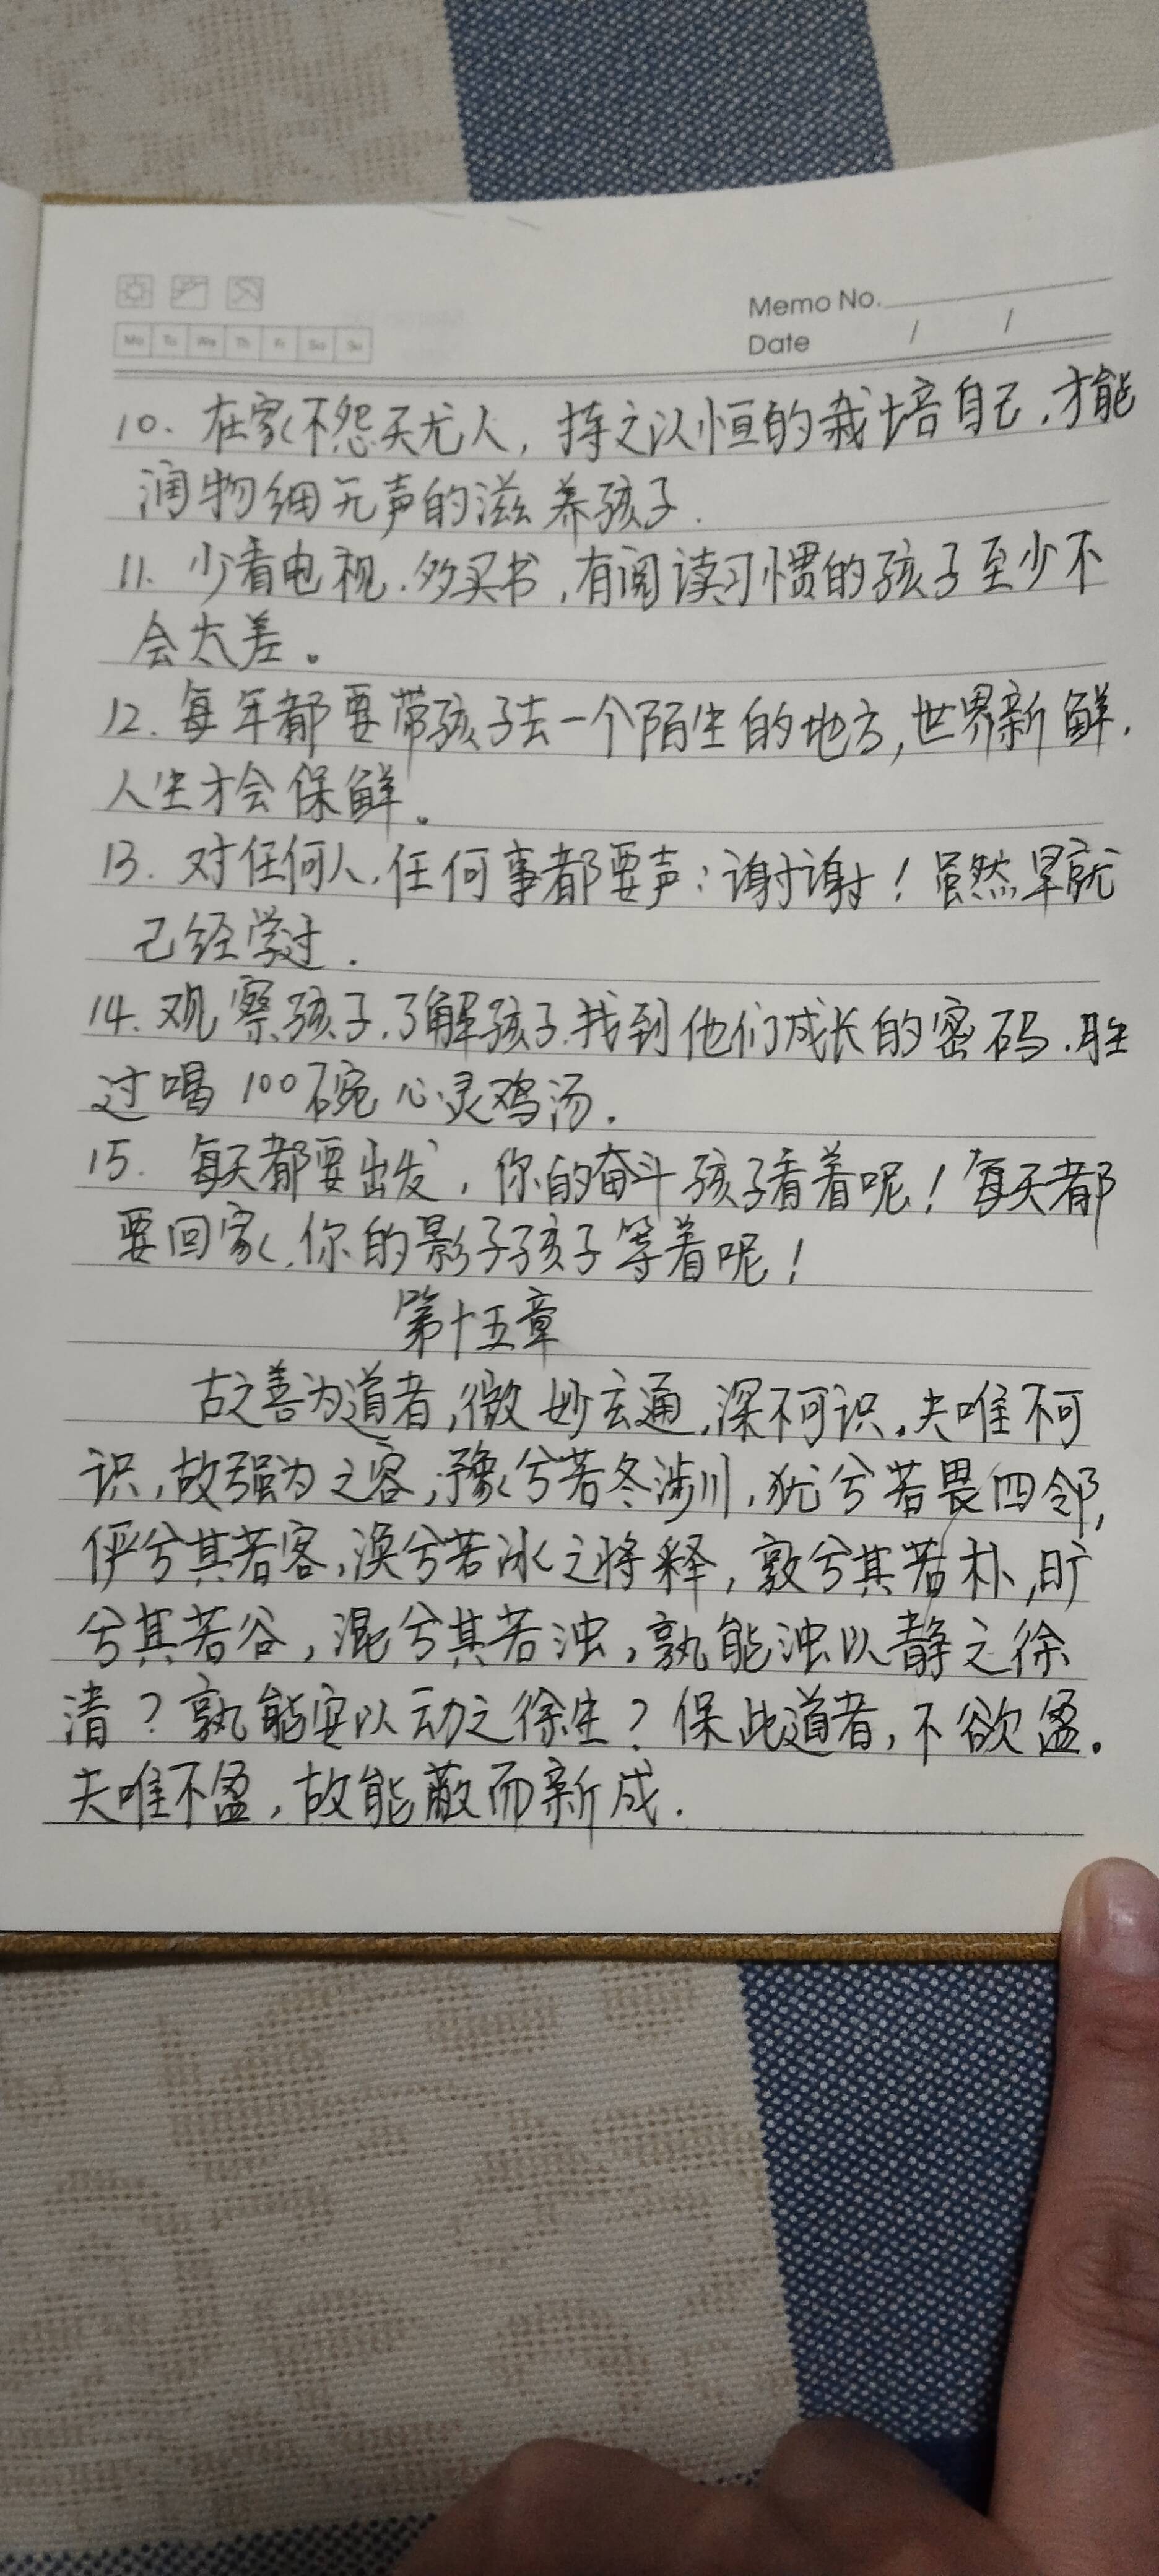 Memo No.
Mo Tu We Th Fr Sa Su
Date / /
10. 在家不怨天尤人, 持之以恒的栽培自己,才能
润物细无声的滋养孩子.
11. 少看电视.多买书,有阅读习惯的孩子至少不
会太差。
12. 每年都要带孩子去一个陌生的地方,世界新鲜,
人生才会保鲜。
13. 对任何人,任何事都要声:谢谢!虽然早就
已经学过.
14. 观察孩子.了解孩子.找到他们成长的密码.胜
过喝100碗心灵鸡汤.
15. 每天都要出发,你的奋斗孩子看着呢!每天都
要回家.你的影子孩子等着呢!
第十五章
古之善为道者,微妙玄通,深不可识。夫唯不可
识,故强为之容;豫兮若冬涉川,犹兮若畏四邻,
俨兮其若客,涣兮若冰之将释,敦兮其若朴,旷
兮其若谷,混兮其若浊。孰能浊以静之徐
清?孰能安以动之徐生?保此道者,不欲盈。
夫唯不盈,故能蔽而新成.